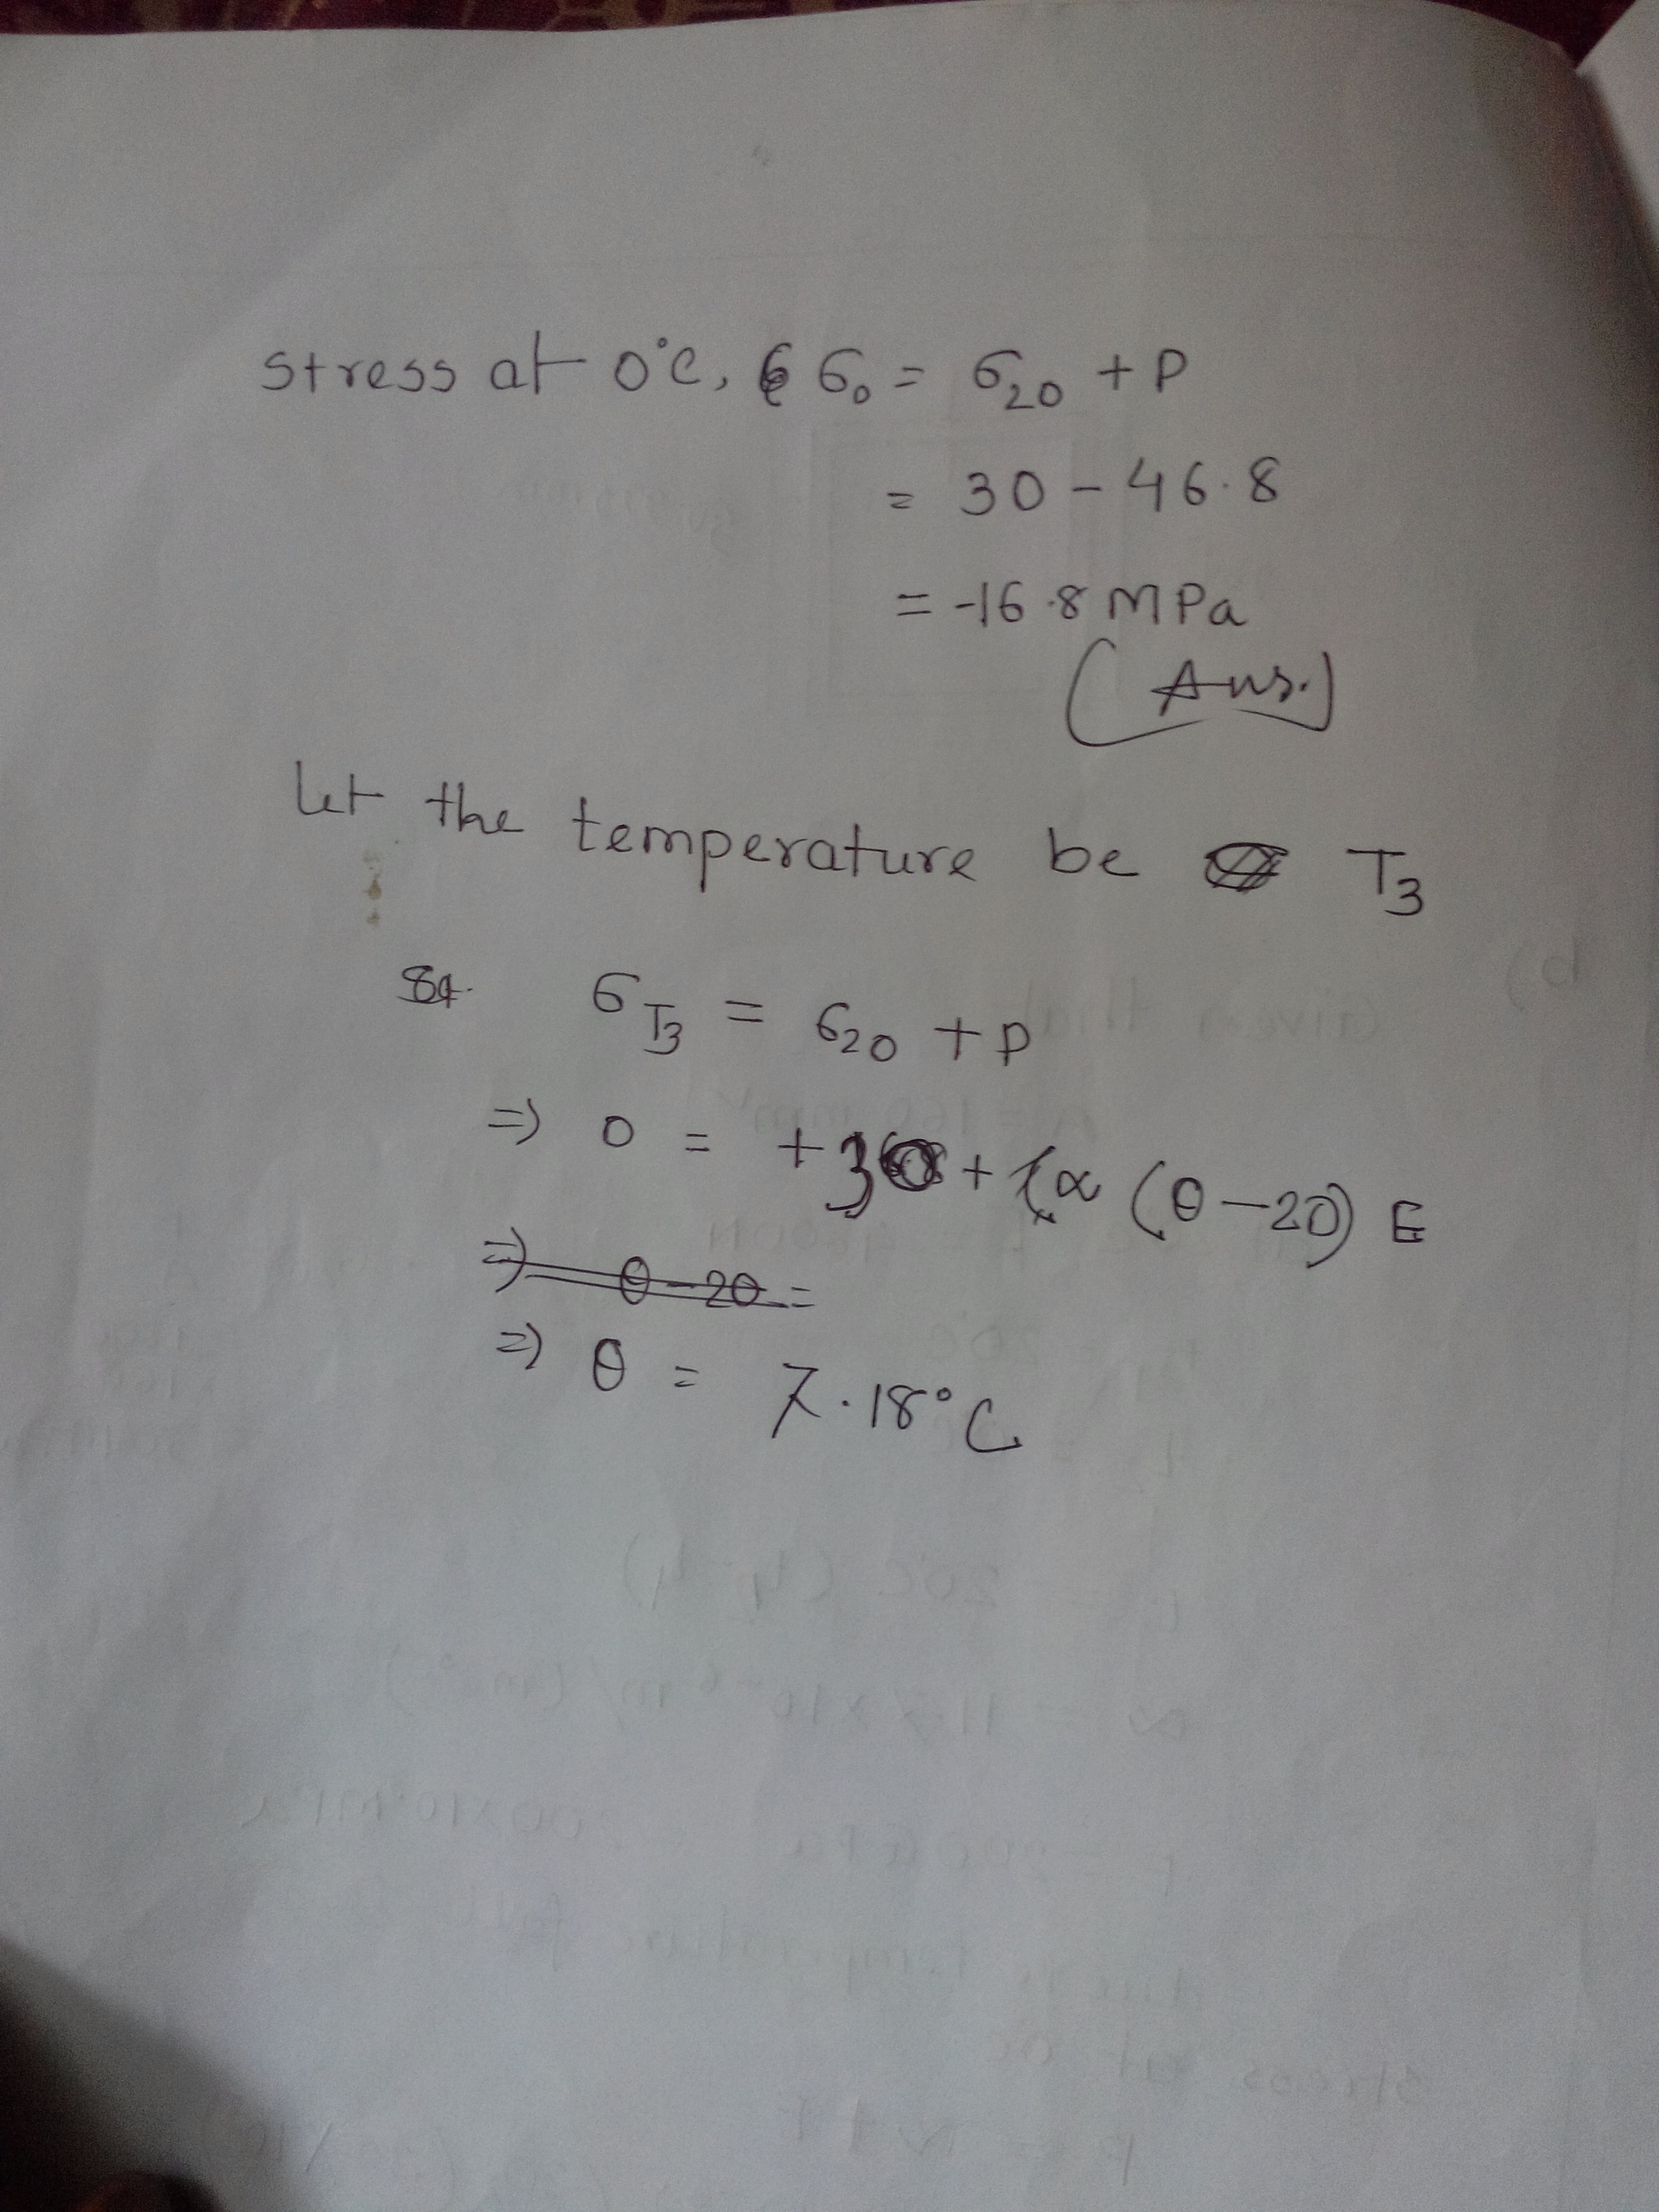 Stress at 0°C, σ₀ = σ₂₀ + P
= 30 - 46.8
= -16.8 MPa
(Ans.)
Let the temperature be T₃
σ_T₃ = σ₂₀ + P
=> 0 = +30 + α (θ - 20) E
=> θ - 20 =
=> θ = 7.18°C